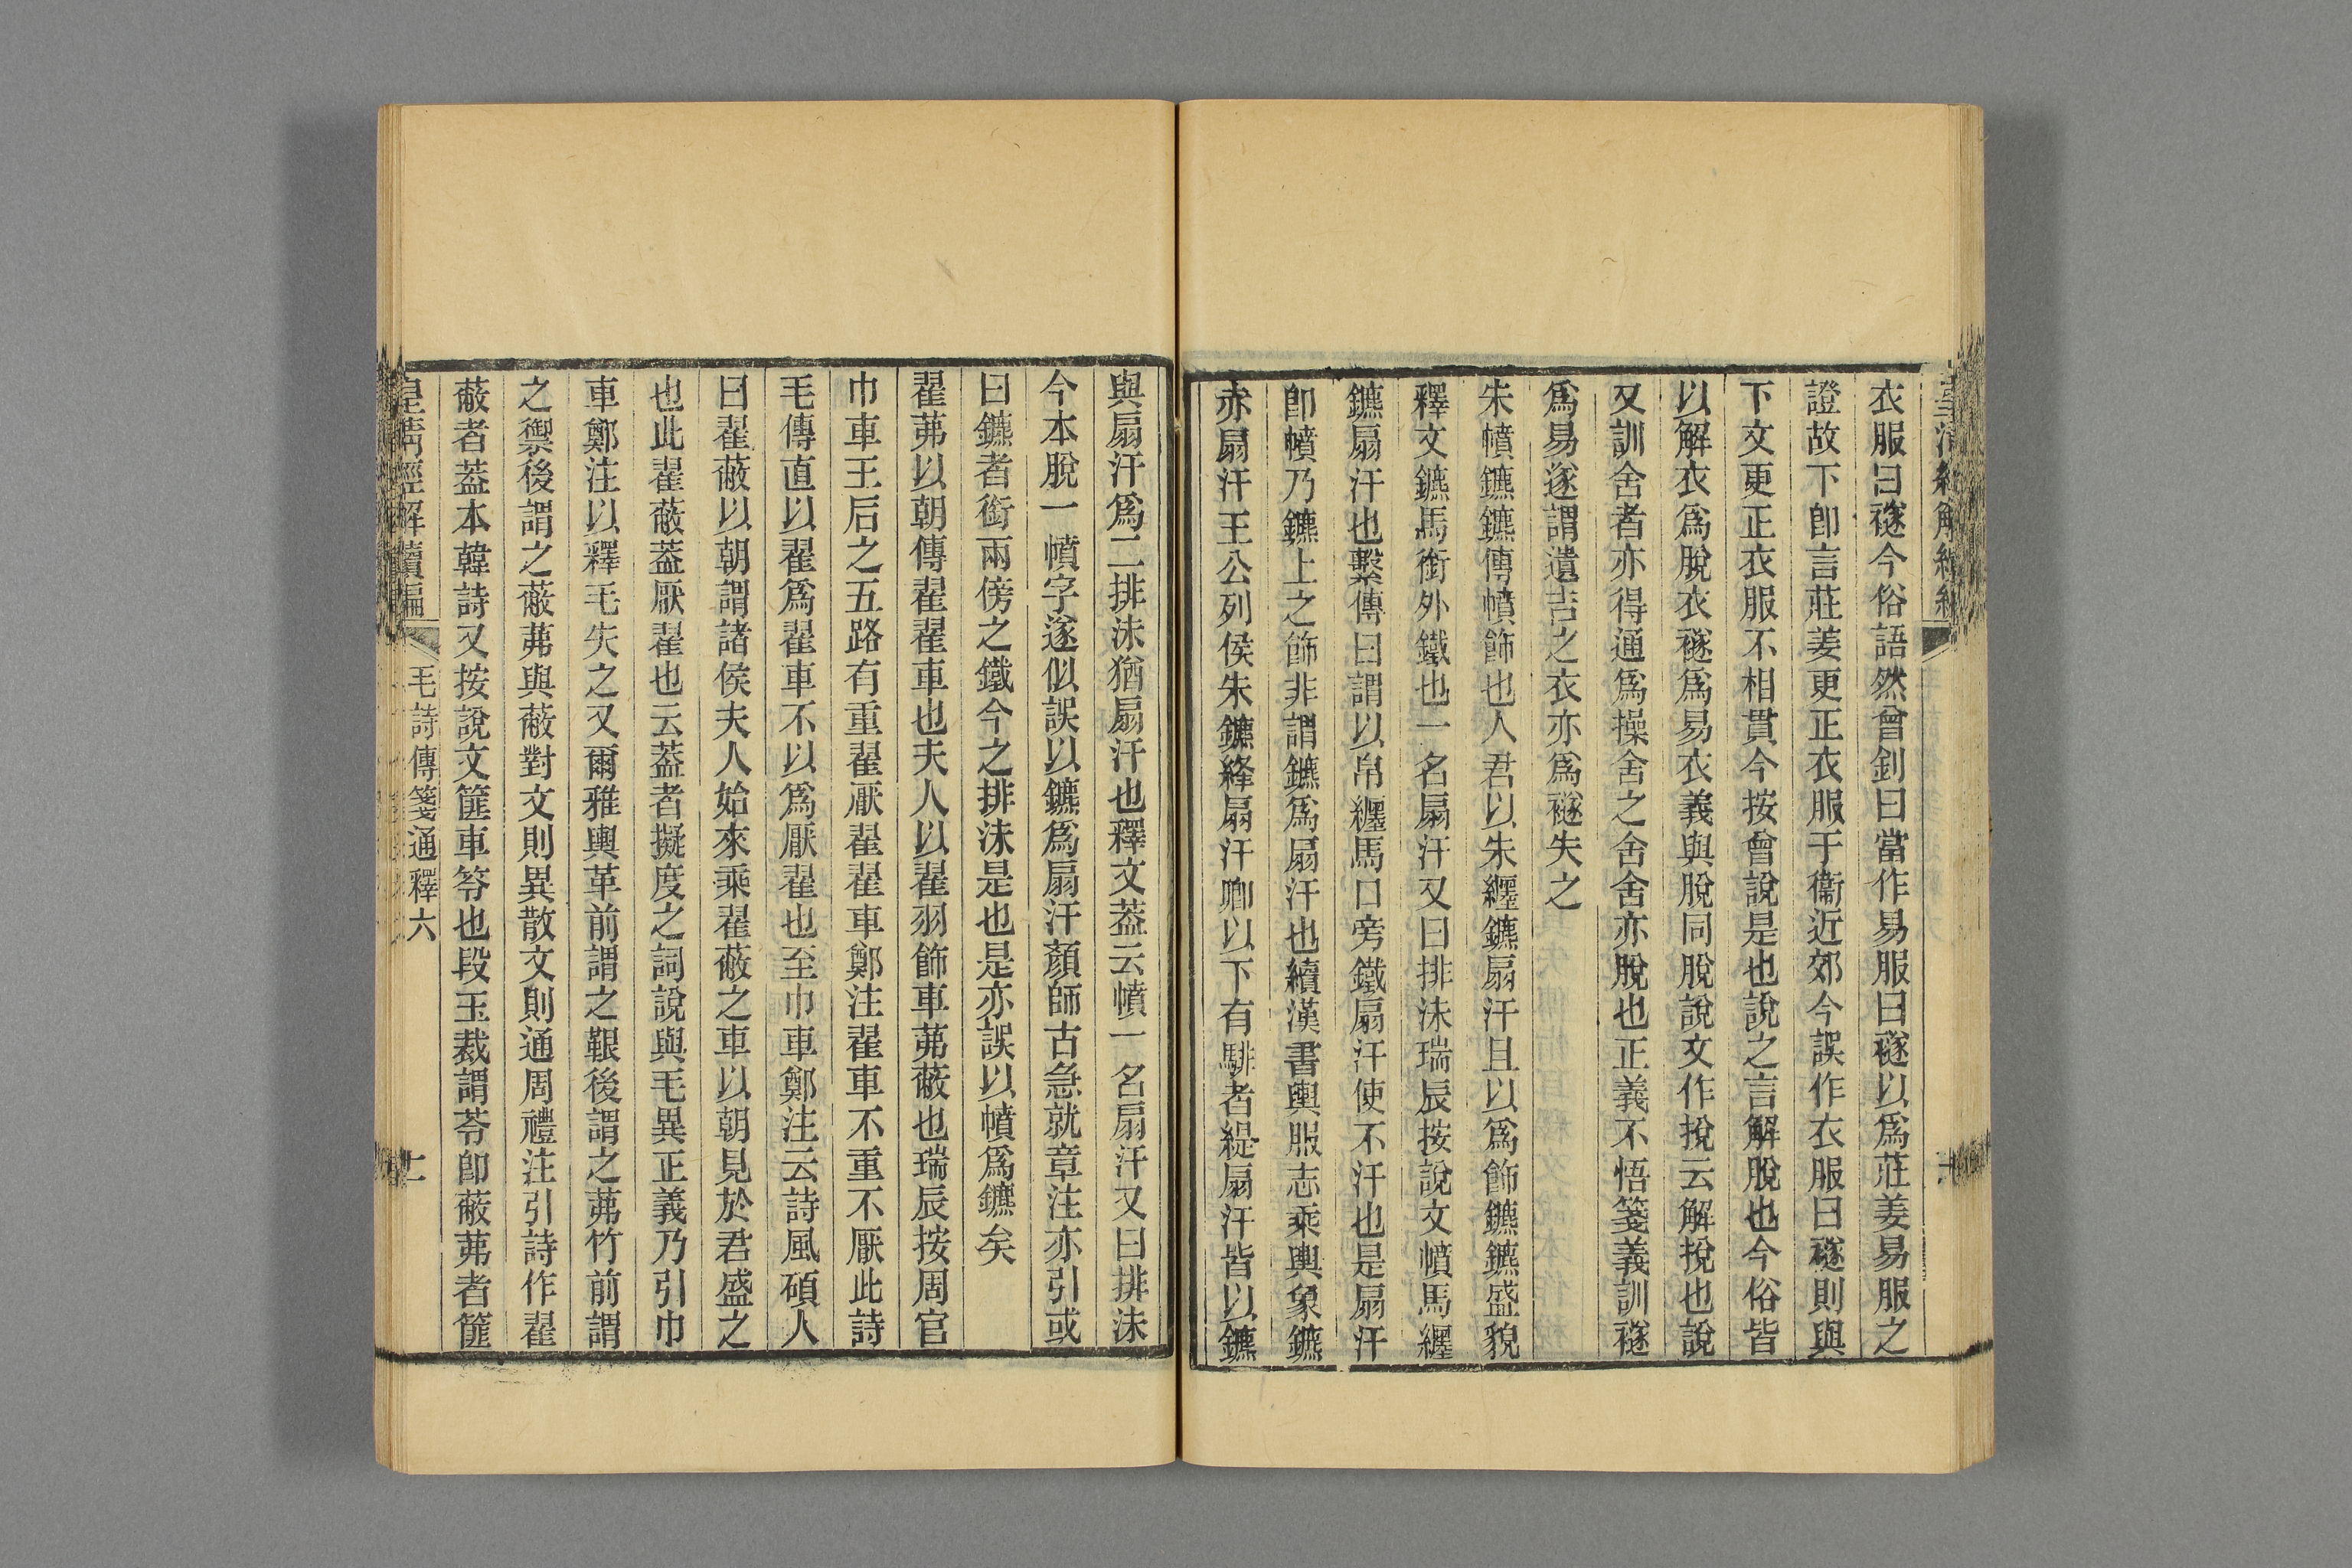 衣服曰襚今俗語然曾釗曰當作易服曰襚以爲莊姜易服之
證故下卽言莊姜更正衣服于衞近郊今誤作衣服曰襚則與
下文更正衣服不相貫今按曾說是也說之言解脫也今俗皆
以解衣爲脫衣襚爲易衣義與脫同脫說文作挩云解挩也說
又訓舍者亦得通爲操舍之舍舍亦脫也正義不悟箋義訓襚
爲易遂謂遺吉之衣亦爲襚失之
朱幩鑣鑣傳幩飾也人君以朱纏鑣扇汗且以爲飾鑣鑣盛貌
釋文鑣馬銜外鐵也一名扇汗又曰排沬瑞辰按說文幩馬纏
鑣扇汗也繫傳曰謂以帛纏馬口旁鐵扇汗使不汗也是扇汗
卽幩乃鑣上之飾非謂鑣爲扇汗也續漢書輿服志乘輿象鑣
赤扇汗王公列侯朱鑣絳扇汗卿以下有騑者緹扇汗皆以鑣
與扇汗爲二排沬猶扇汗也釋文葢云幩一名扇汗又曰排沬
今本脫一幩字遂似誤以鑣爲扇汗顏師古急就章注亦引或
曰鑣者銜兩傍之鐵今之排沬是也是亦誤以幩爲鑣矣
翟茀以朝傳翟翟車也夫人以翟羽飾車茀蔽也瑞辰按周官
巾車王后之五路有重翟厭翟翟車鄭注翟車不重不厭此詩
毛傳直以翟爲翟車不以爲厭翟也至巾車鄭注云詩風碩人
曰翟蔽以朝謂諸侯夫人始來乘翟蔽之車以朝見於君盛之
也此翟蔽葢厭翟也云葢者擬度之詞說與毛異正義乃引巾
車鄭注以釋毛失之又爾雅輿革前謂之鞎後謂之茀竹前謂
之禦後謂之蔽茀與蔽對文則異散文則通周禮注引詩作翟
蔽者葢本韓詩又按說文䉛車笭也段玉裁謂笭卽蔽茀者䉛
皇清經解續編 毛詩傳箋通釋六